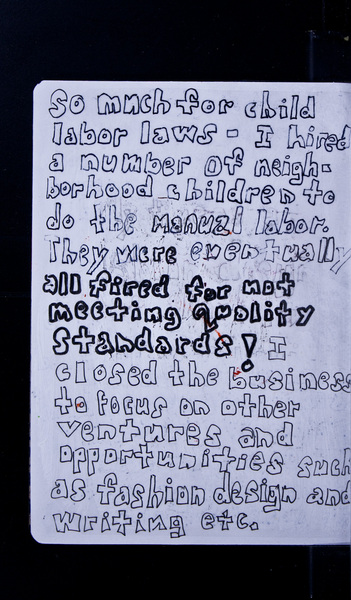 So much for child
labor laws - I hired
a number of neigh-
borhood children to
do the manual labor.
They were eventually
all fired for not
meeting quality
standards! I
closed the business
to focus on other
ventures and
opportunities such
as fashion design and
writing etc.